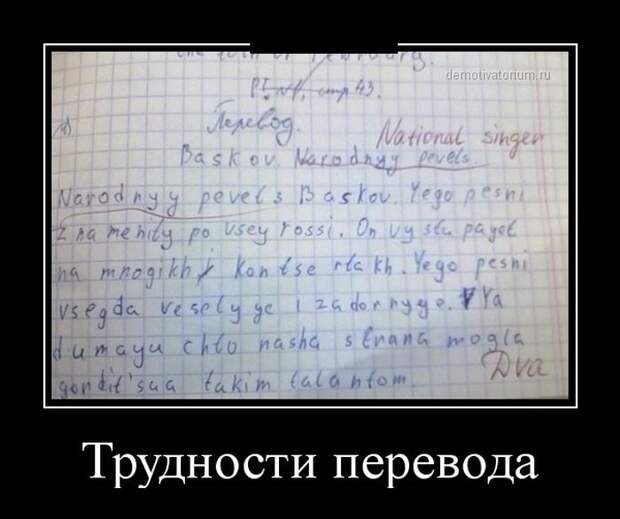 demotivatorium.ru
of February.
стр 43.
1)
Перевод.
National singer
Baskov. Narodnyy pevets.
Narodnyy pevets Baskov. Yego pesni
znamenity po vsey rossi. On vystupayet
na mnogikh kontsertakh. Yego pesni
vsegda veselyye i zadornyye. Ya
dumayu chto nasha strana mogla
gordit'sya takim talantom.
Dva
Трудности перевода